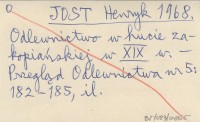 O JOST Henryk 1968.
Odlewnictwo w hucie za-
kopiańskiej w XIX w. —
Przegląd Odlewnictwa nr 5:
182-185, il.